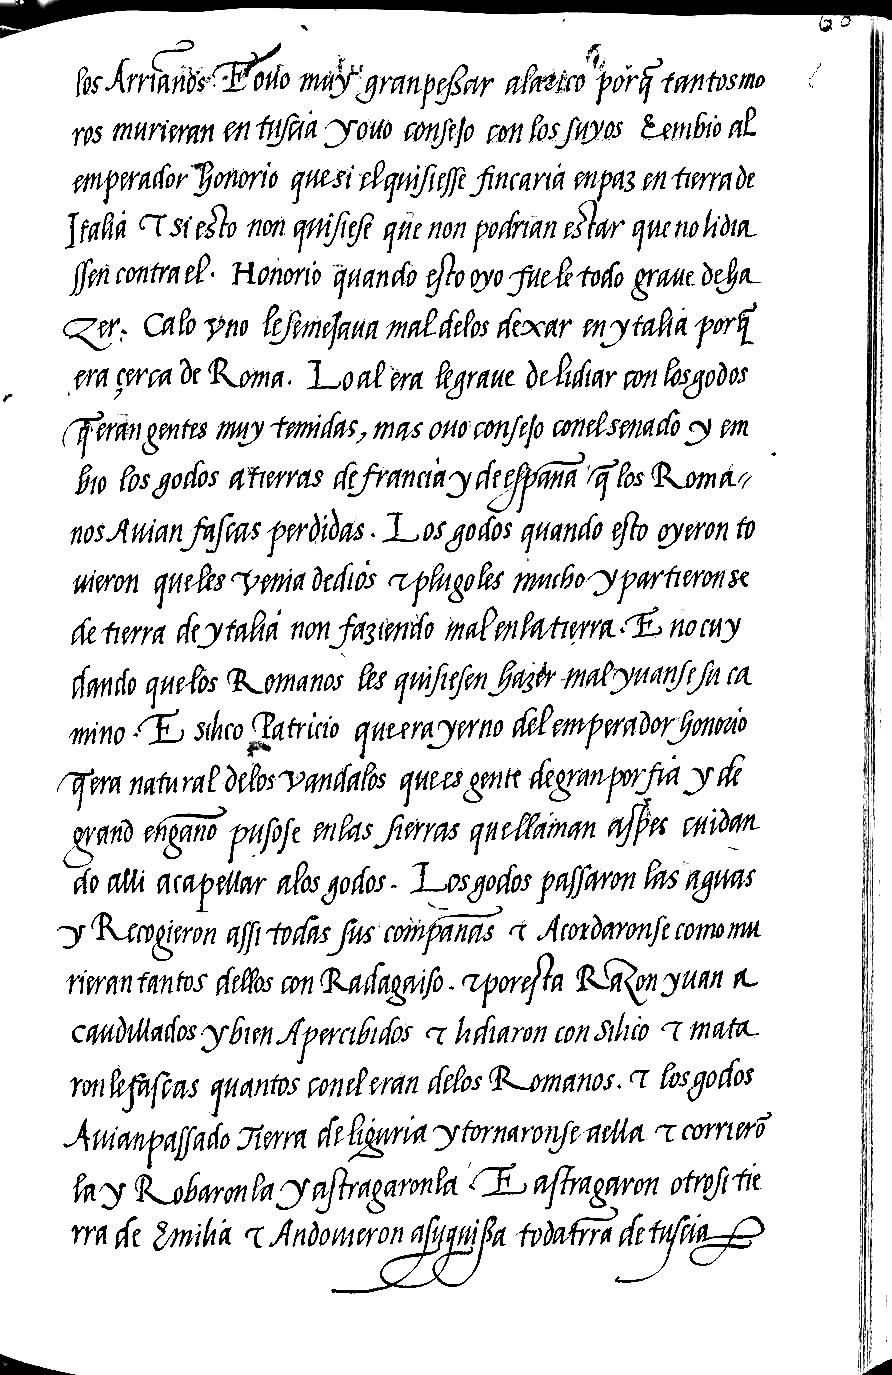 60
los Arrianos. E ouo muy gran pessar alarico porq̄ tantos mo
ros murieran en tuscia y ouo consejo con los suyos & embio al
emperador honorio que si el quisiesse fincaria en paz en tierra de
Italia τ si esto non quisiese que non podrian estar que no lidia
ssen contra el. Honorio quando esto oyo fue le todo graue de ha
zer. Ca lo vno le semejaua mal de los dexar en ytalia porq̄
era çerca de Roma. Lo al era le graue de lidiar con los godos
q̄ eran gentes muy temidas, mas ouo consejo con el senado y em
bio los godos a tierras de francia y de españa q̄ los Roma//
nos Auian fascas perdidas. Los godos quando esto oyeron to
uieron que les venia de dios τ plugoles mucho y partieronse
de tierra de ytalia non faziendo mal en la tierra. E no cuy
dando que los Romanos les quisiesen hazer mal yuanse su ca
mino. E silico Patricio que era yerno del emperador honorio
q̄ era natural de los vandalos que es gente de gran porfia y de
grand engaño pusose en las sierras que llaman aspes cuidan
do alli acapellar a los godos. Los godos passaron las aguas
y Recogieron assi todas sus compañas τ Acordaronse como mu
rieran tantos dellos con Radagaiso. τ por esta Razon yuan a
caudillados y bien Apercibidos τ lidiaron con silico τ mata
ronle fascas quantos con el eran de los Romanos. τ los godos
Auian passado Tierra de liguria y tornaronse a ella τ corrierō
la y Robaronla y astragaronla. E astragaron otrosi tie
rra de Emilia τ Andouieron a su guissa toda trra de tuscia